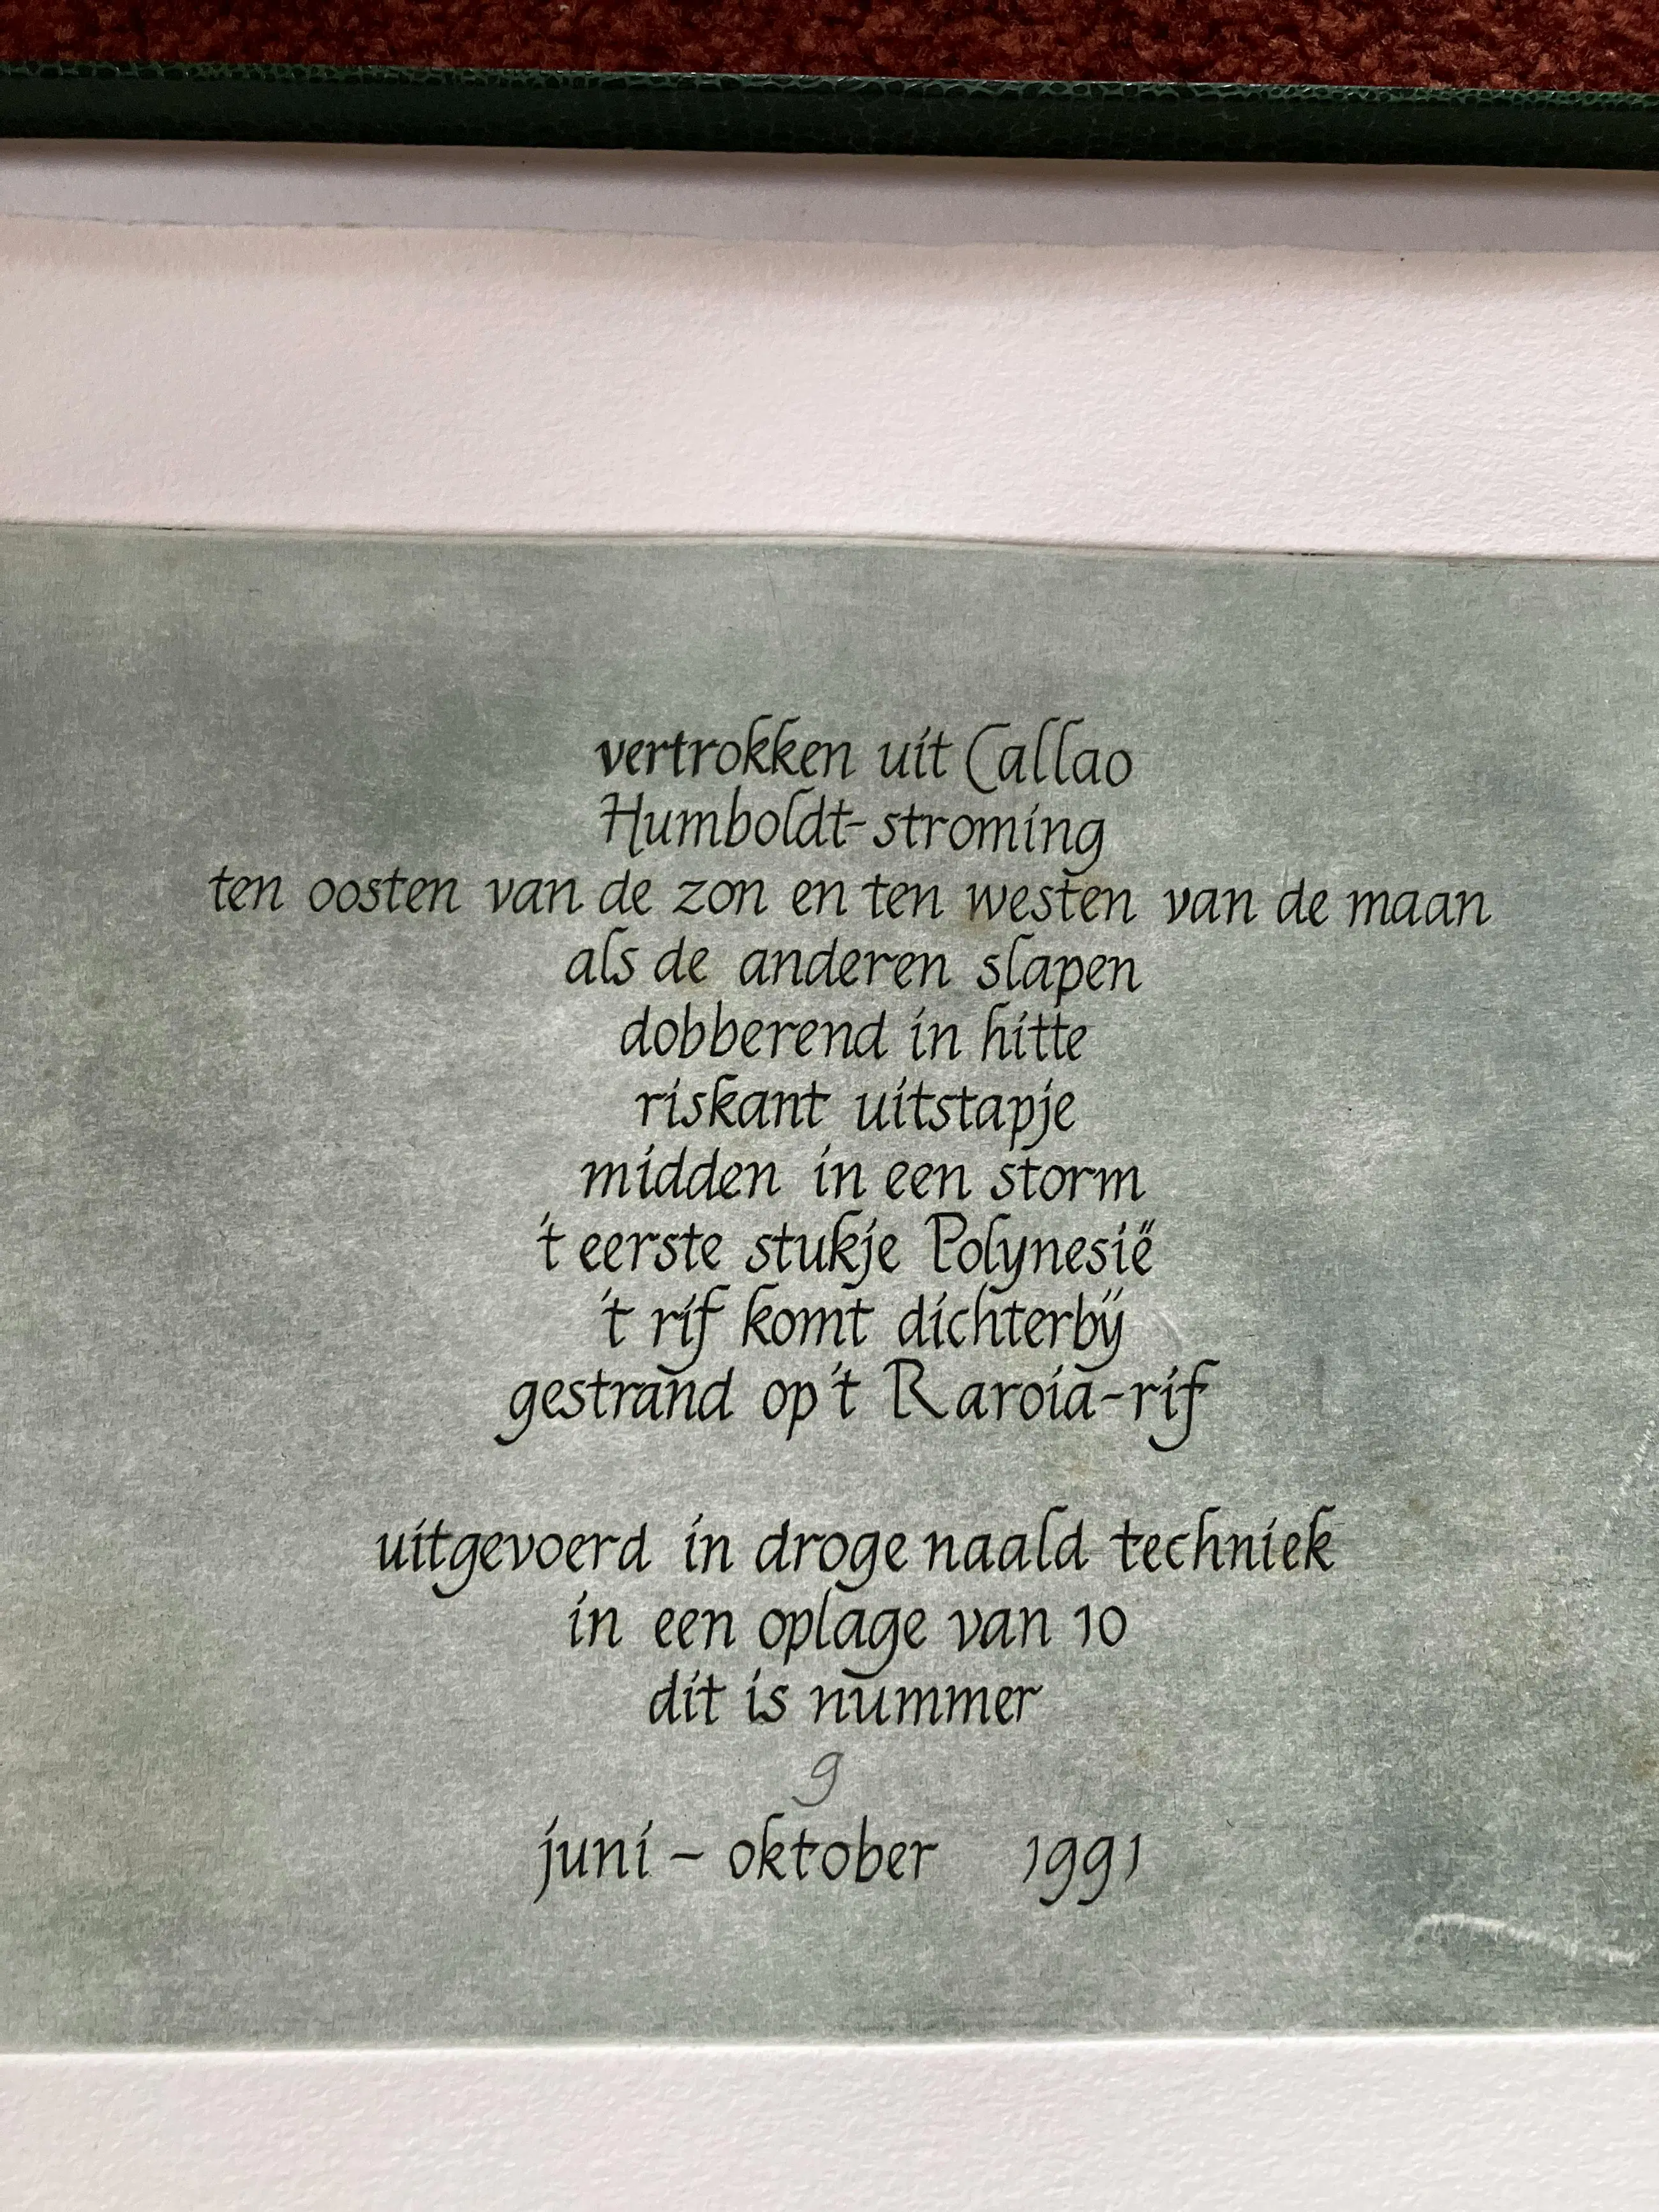 vertrokken uit Callao
Humboldt-stroming
ten oosten van de zon en ten westen van de maan
als de anderen slapen
dobberend in hitte
riskant uitstapje
midden in een storm
't eerste stukje Polynesië
't rif komt dichterbij
gestrand op 't Raroia-rif
uitgevoerd in droge naald techniek
in een oplage van 10
dit is nummer
9
juni - oktober 1991